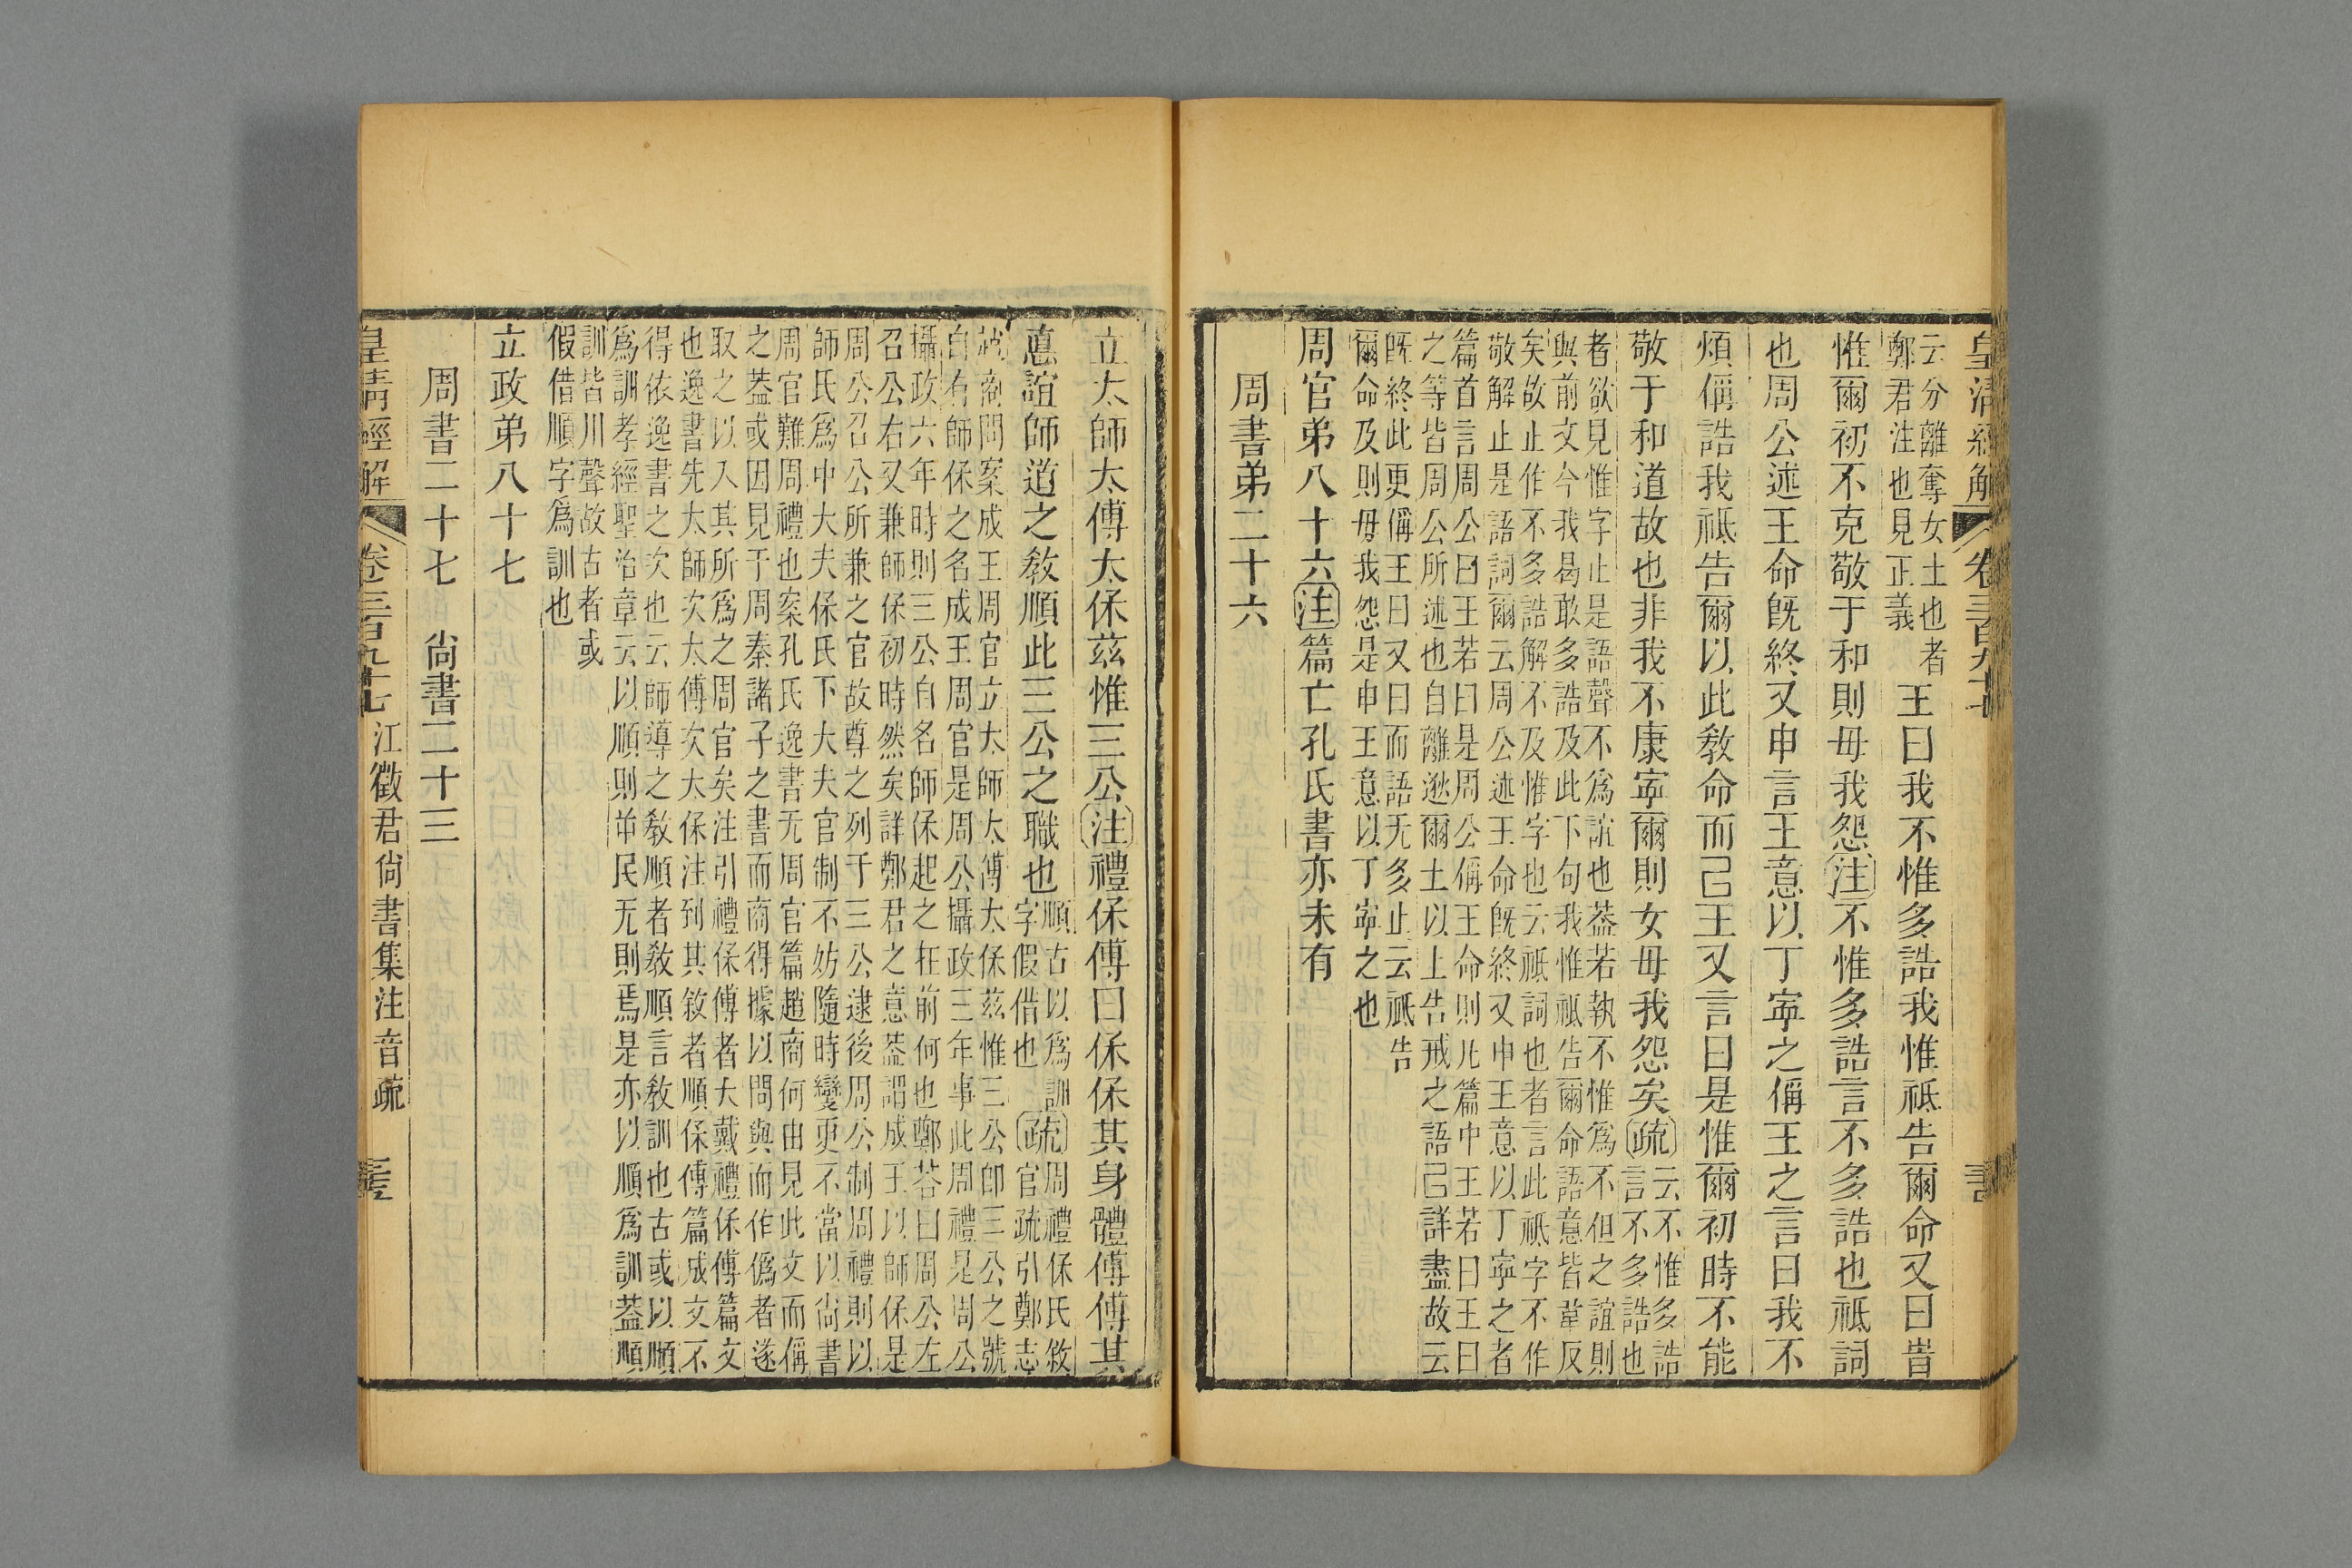 皇清經解 卷三百九十七 書
云分離奪女土也者
鄭君注也見正義
王曰我不惟多誥我惟祗告爾命又曰旹
惟爾初不克敬于和則毋我怨注不惟多誥言不多誥也祗詞
也周公述王命旣終又申言王意以丁寧之偁王之言曰我不
煩偁誥我祗告爾以此敎命而已王又言曰是惟爾初時不能
敬于和道故也非我不康寧爾則女毋我怨矣疏
云不惟多誥
言不多誥也
者欲見惟字止是語聲不爲誼也葢若執不惟爲不但之誼則
與前文今我曷敢多誥及此下句我惟祗告爾命語意皆韋反
矣故止作不多誥解不及惟字也云祗詞也者言此祗字不作
敬解止是語詞爾云周公述王命旣終又申王意以丁寧之者
篇首言周公曰王若曰是周公偁王命則此篇中王若曰王曰
之等皆周公所述也自離逖爾土以上告戒之語已詳盡故云
旣終此更偁王曰又曰而語无多止云祗告
爾命及則毋我怨是申王意以丁寧之也
周官弟八十六注篇亡孔氏書亦未有
周書弟二十六
立太師太傅太保茲惟三公注禮保傅曰保保其身體傅傅其
悳誼師道之敎順此三公之職也
順古以爲訓
字假借也
疏
周禮保氏敘
官疏引鄭志
趙商問案成王周官立太師太傅太保茲惟三公卽三公之號
自有師保之名成王周官是周公攝政三年事此周禮是周公
攝政六年時則三公自名師保起之在前何也鄭荅曰周公左
召公右又兼師保初時然矣詳鄭君之意葢謂成王以師保是
周公召公所兼之官故尊之列于三公逮後周公制周禮則以
師氏爲中大夫保氏下大夫官制不妨隨時變更不當以尙書
周官難周禮也案孔氏逸書无周官篇趙商何由見此文而偁
之葢或因見于周秦諸子之書而商得據以問與而作僞者遂
取之以入其所爲之周官矣注引禮保傅者大戴禮保傅篇文
也逸書先太師次太傅次太保注到其敘者順保傅篇成文不
得依逸書之次也云師導之敎順者敎順言敎訓也古或以順
爲訓孝經聖治章云以順則民无則焉是亦以順爲訓葢順
訓皆川聲故古者或
假借順字爲訓也
立政弟八十七
周書二十七 尙書二十三
皇清經解 卷三百九十七 江徵君尙書集注音疏